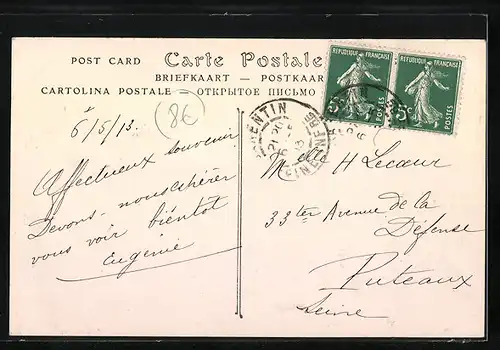 POST CARD Carte Postale
BRIEFKAART — POSTKAART
CARTOLINA POSTALE — ОТКРЫТОЕ ПИСЬМО
REPUBLIQUE FRANÇAISE
5c POSTES
REPUBLIQUE FRANÇAISE
5c POSTES
6/5/13.
86
Affectueux souvenir
vous voir bientôt
Eugénie
Melle H Lecoeur
33ter Avenue de la
Défense
Puteaux
Seine